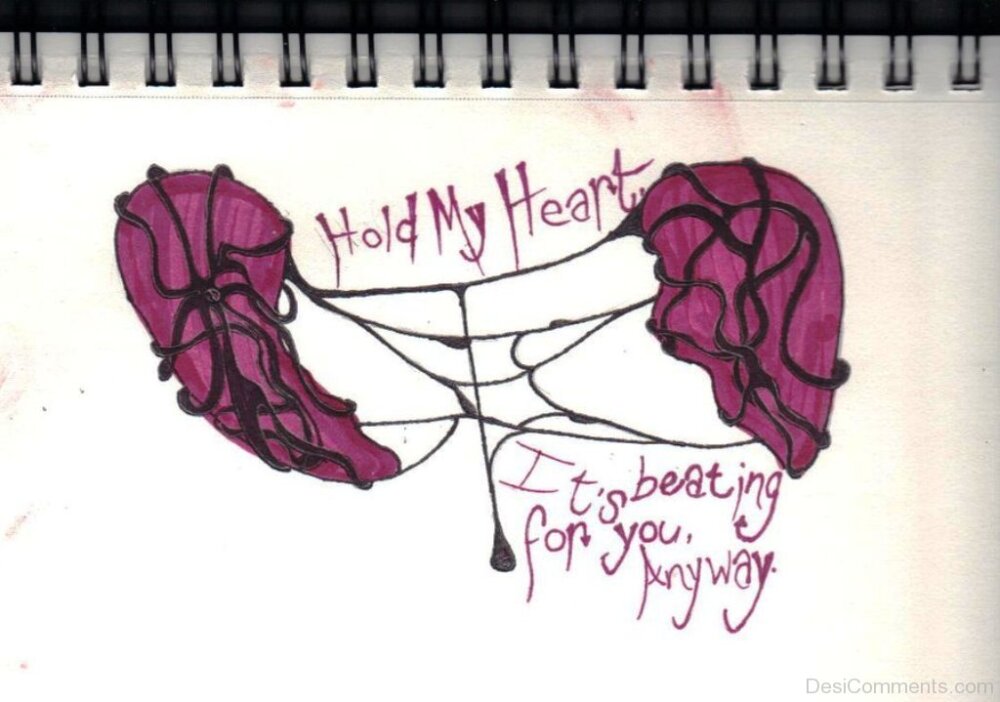 Hold My Heart,
It's beating
for you,
Anyway.
DesiComments.com